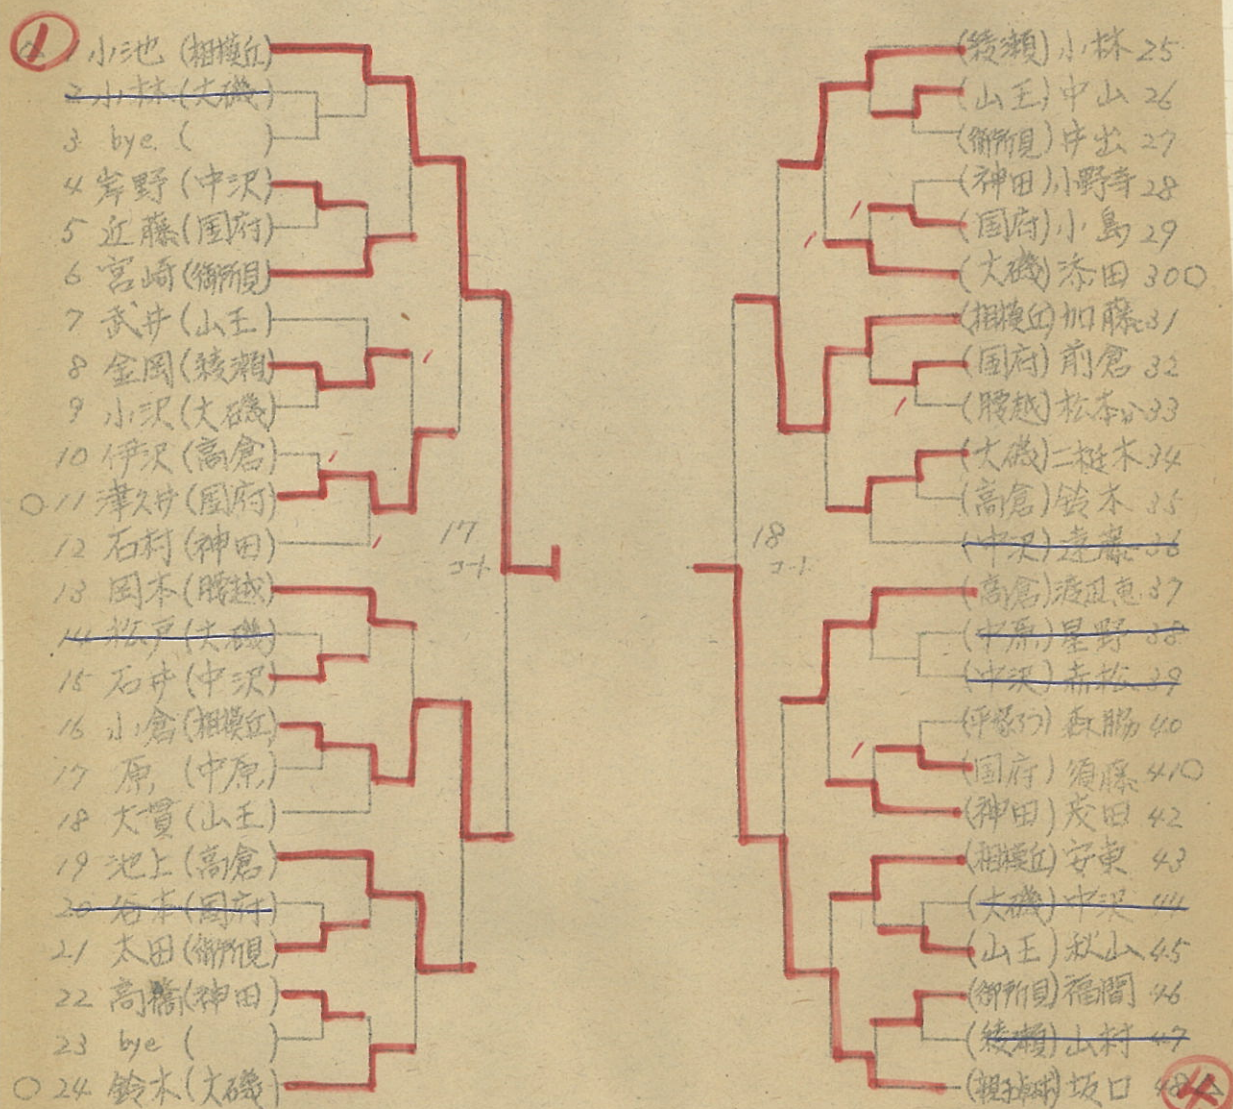 ①
1 小池 (相模丘)
2 小林 (大磯)
3 bye ( )
4 岸野 (中沢)
5 近藤 (国府)
6 宮崎 (御所見)
7 武井 (山王)
8 金岡 (綾瀬)
9 小沢 (大磯)
10 伊沢 (高倉)
○ 11 津久井 (国府)
12 石村 (神田)
13 岡本 (腰越)
14 松戸 (大磯)
15 石井 (中沢)
16 小倉 (相模丘)
17 原 (中原)
18 大貫 (山王)
19 池上 (高倉)
20 谷本 (国府)
21 太田 (御所見)
22 高橋 (神田)
23 bye ( )
○ 24 鈴木 (大磯)
17
コート
18
コート
(綾瀬) 小林 25
(山王) 中山 26
(御所見) 井出 27
(神田) 小野寺 28
(国府) 小島 29
(大磯) 添田 30 ○
(相模丘) 加藤 31
(国府) 前倉 32
(腰越) 松本 33
(大磯) 二梃木 34
(高倉) 鈴木 35
(中沢) 遠藤 36
(高倉) 渡辺恵 37
(中原) 星野 38
(中沢) 赤松 39
(平塚ろう) 森脇 40
(国府) 須藤 41 ○
(神田) 茂田 42
(相模丘) 安東 43
(大磯) 中沢 44
(山王) 秋山 45
(御所見) 福間 46
(綾瀬) 山村 47
坂口 48
④